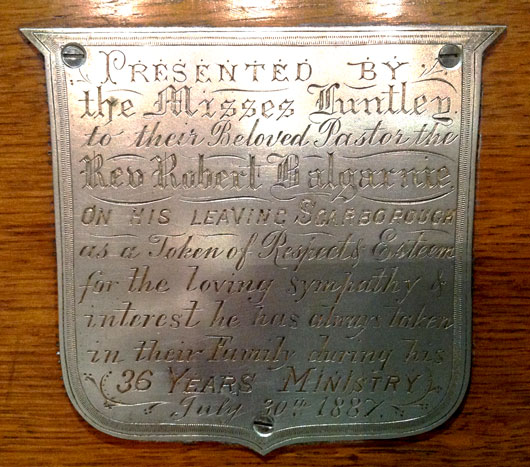 PRESENTED BY
the Misses Luntley
to their Beloved Pastor the
Rev Robert Balgarnie
ON HIS LEAVING SCARBOROUGH
as a Token of Respect & Esteem
for the loving sympathy &
interest he has always taken
in their Family during his
(36 YEARS MINISTRY)
July 30th 1887.